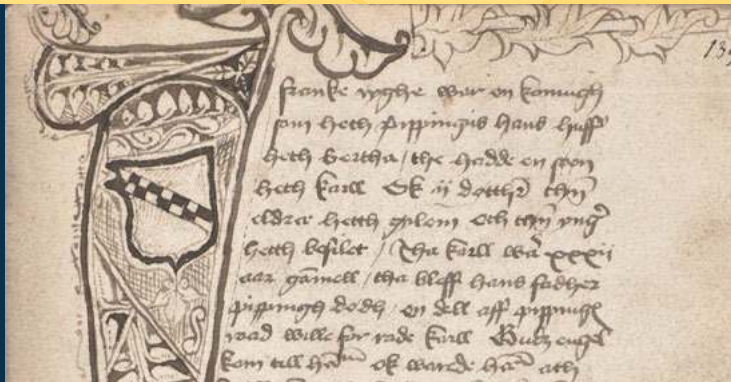 franke righe war en konningh
som heth pippingis hans husf
heth bertha / the hadde en søn
heth karll Ok ij dotthr thn
eldræ hetth gylem och thn yngr
hetth besilet / Tha karll wa xxxii
aar gamell / tha bleff hans fadher
pippingh dødh / en dell aff pippingh
raad wille for rade karll Gudz engel
kom till ham ok warede ham ath